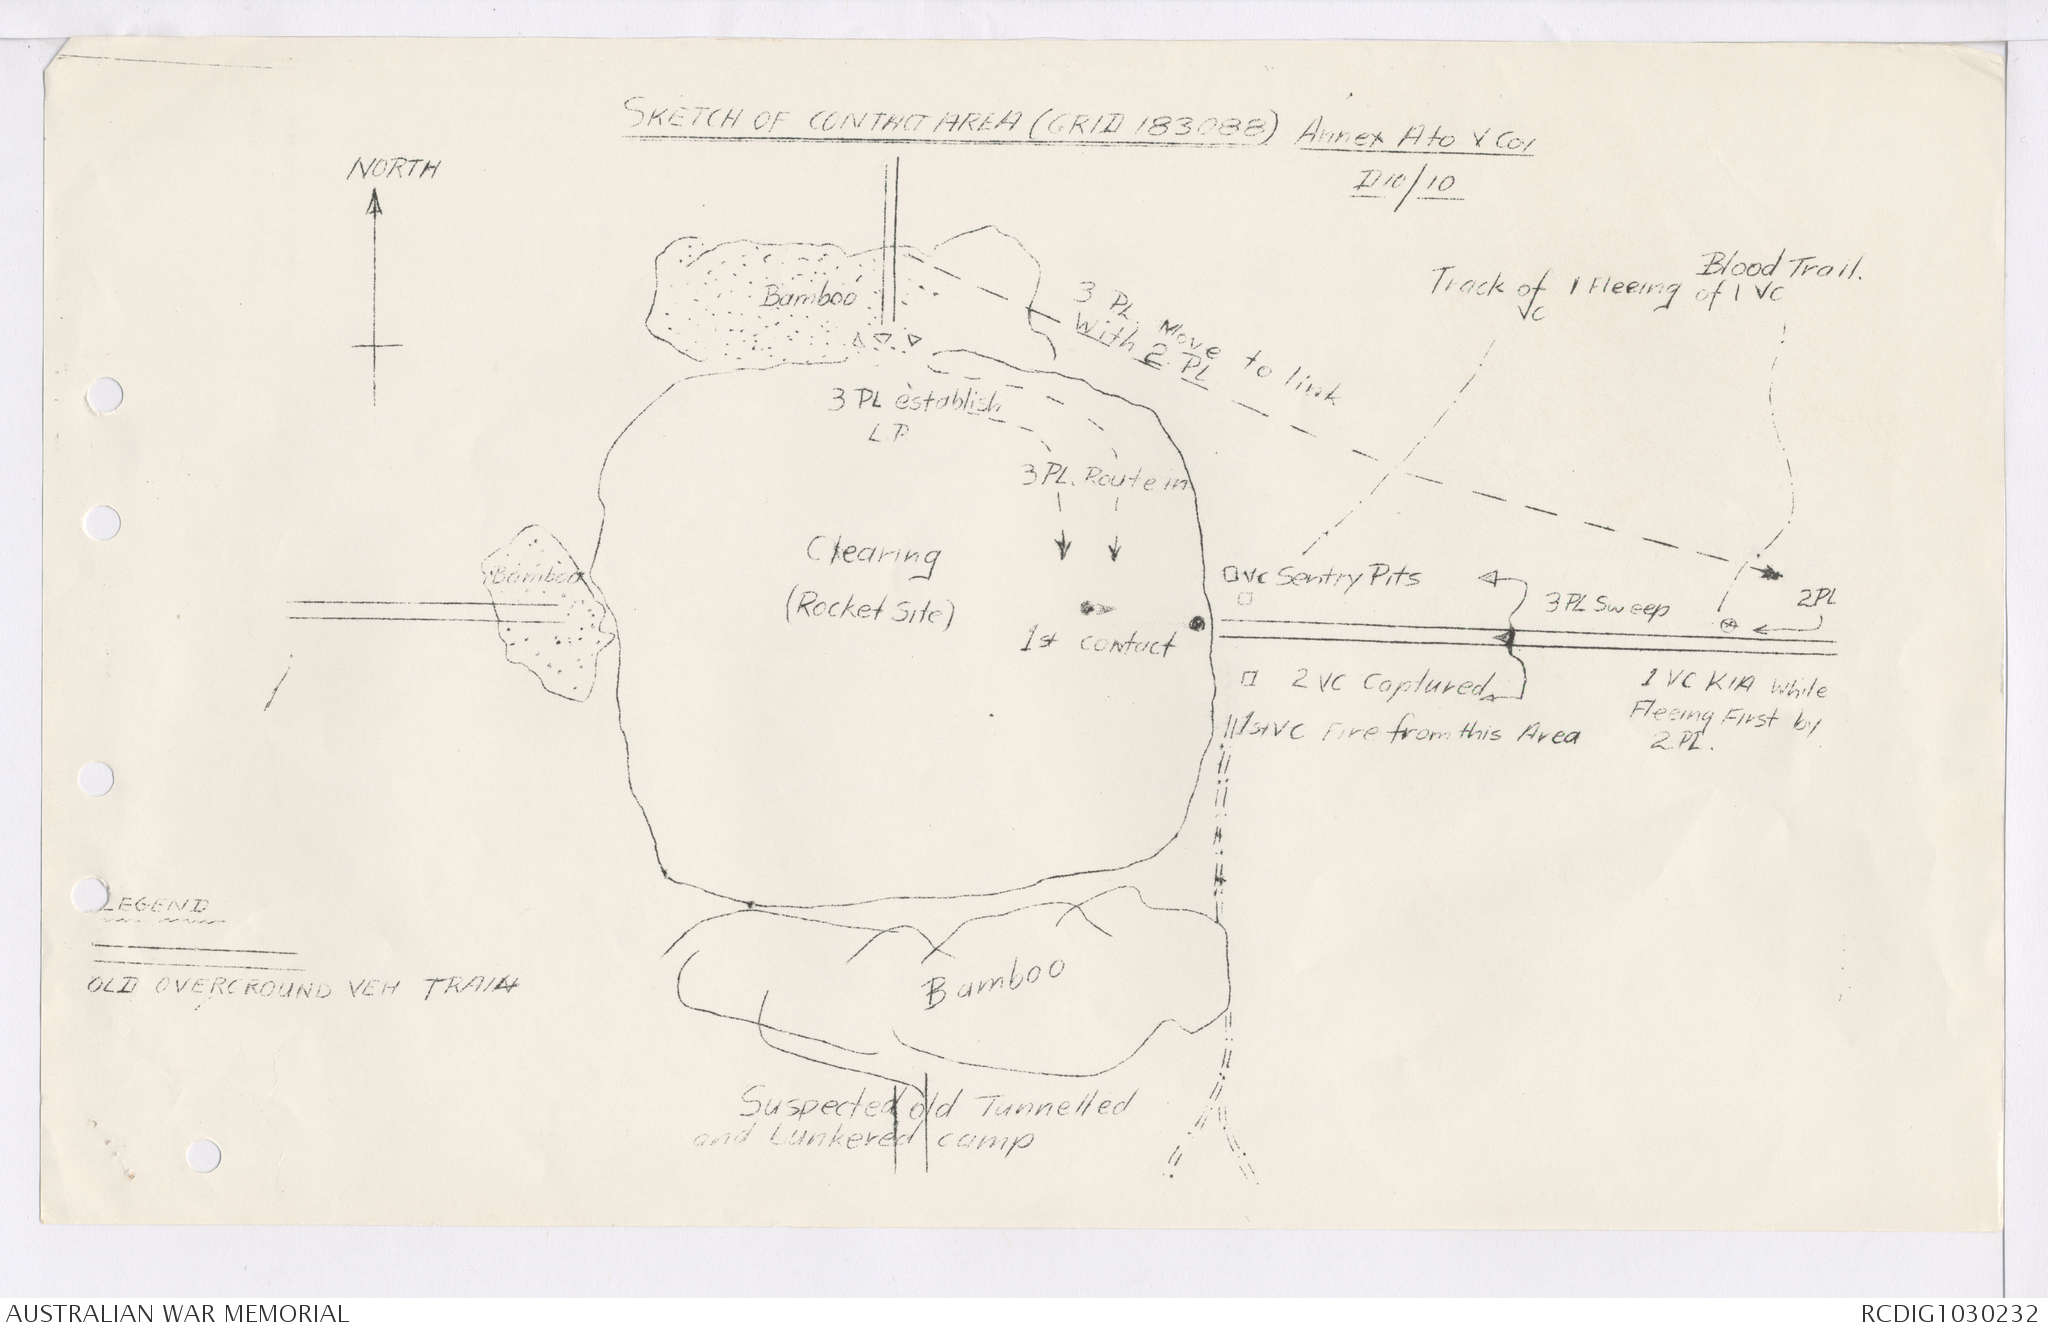 SKETCH OF CONTACT AREA (GRID 183088) Annex A to V Coy
D10/10
NORTH
Blood Trail.
of 1 VC
Track of 1 Fleeing
VC
Bamboo
3 PL. Move to link
With 2 PL
3 PL establish
L.P
3 PL. Route in
Clearing
(Rocket Site)
Bamboo
1st contact
VC Sentry Pits
3 PL Sweep
2 PL
2 VC Captured
1st VC Fire from this Area
1 VC KIA While
Fleeing First by
2 PL.
LEGEND
OLD OVERGROUND VEH TRAIN
Bamboo
Suspected old Tunnelled
and Lunkered camp
AUSTRALIAN WAR MEMORIAL
RCDIG1030232